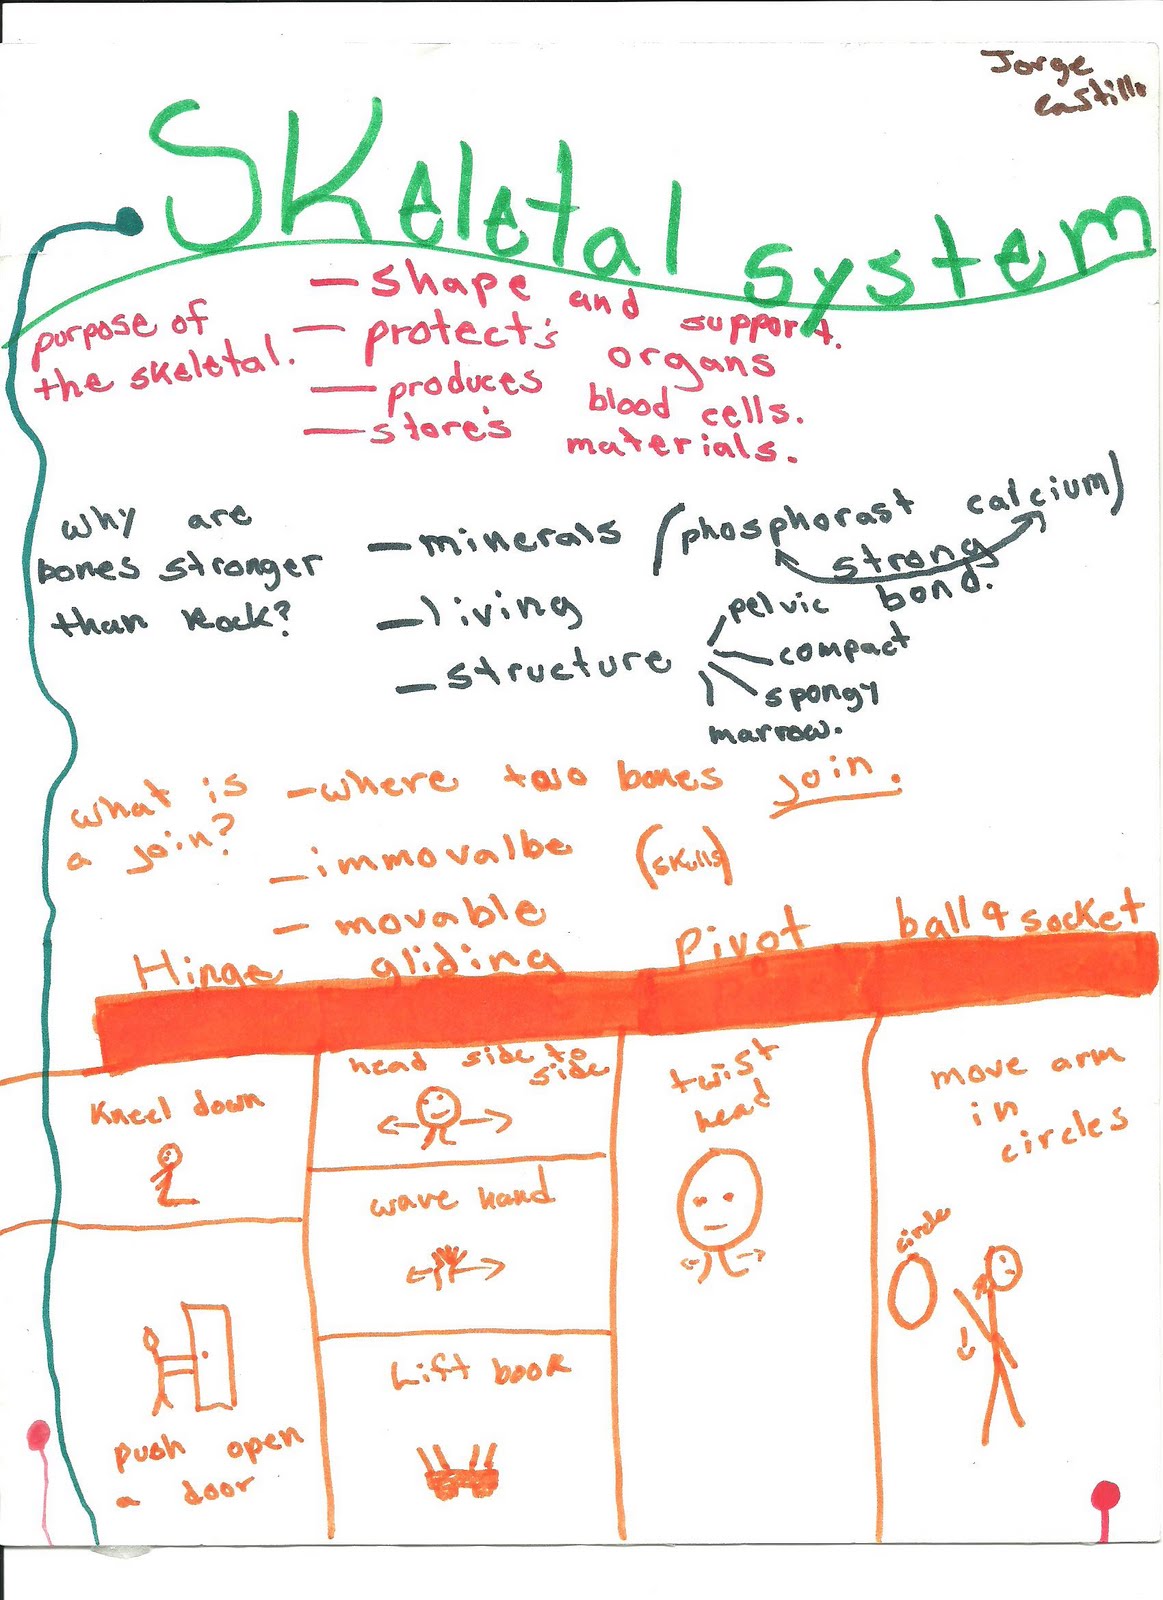 Jorge
Castillo
Skeletal system
purpose of
the skeletal.
— shape and support.
— protect's organs
— produces blood cells.
— store's materials.
why are
bones stronger
than Rock?
— minerals (phosphorast calcium)
strong
bond.
— living
— structure
pelvic
compact
spongy
marrow.
what is
a join?
- where two bones join.
- immovalbe (skulls)
- movable
Hinge gliding pivot ball & socket
kneel down
push open
a door
head side to
side
wave hand
Lift book
twist
head
move arm
in
circles
circle